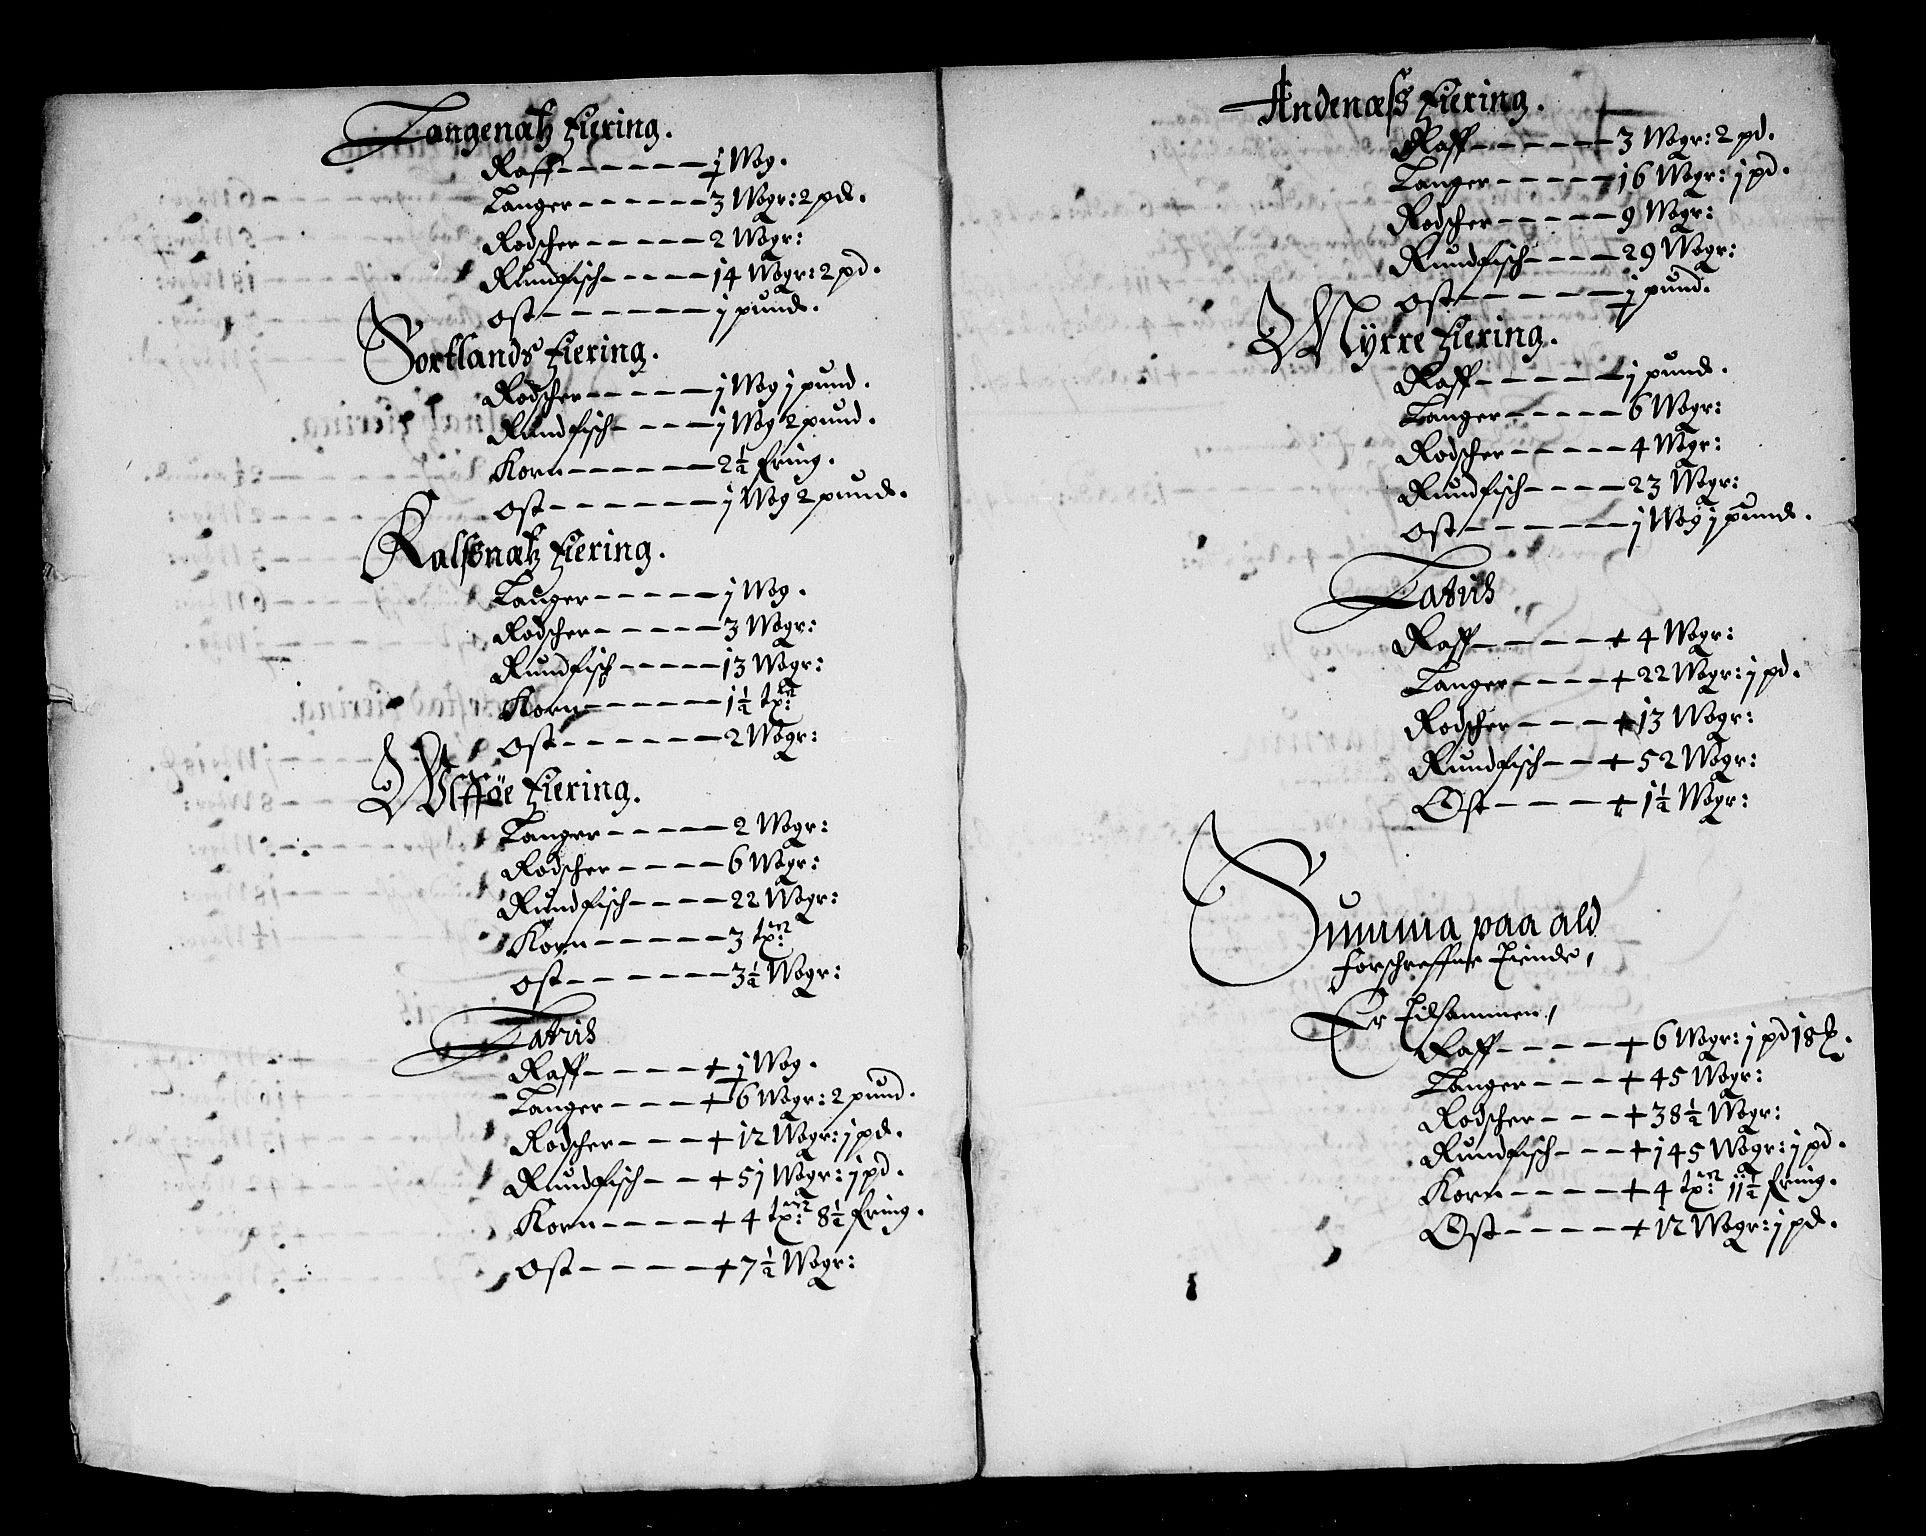 Langenætz Fiering.
Raff - - - - - - 1 Wog.
Langer - - - - - - 3 Wogr: 2 pd.
Rodscher - - - - - 2 Wogr:
Rundfisch - - - - - 14 Wogr: 2 pd.
Ost - - - - - - - 1 pund.
Sortlands Fiering.
Rodscher - - - - - 1 Wog 1 pund.
Rundfisch - - - - 1 Wog 2 pund.
Korn - - - - - - 2½ Ering.
Ost - - - - - - - 1 Wog 2 pund.
Kalssnætz Fiering.
Langer - - - - - - 1 Wog.
Rodscher - - - - - - 3 Wogr:
Rundfisch - - - - - 13 Wogr:
Korn - - - - - - 1½ tr:
Ost - - - - - - - 2 Wogr:
Ulfföe Fiering.
Langer - - - - - - 2 Wogr:
Rodscher - - - - - 6 Wogr:
Rundfisch - - - - - 22 Wogr:
Korn - - - - - - 3 tr:
Ost - - - - - - - 3½ Wogr:
Lateris
Raff - - - - - + 1 Wog.
Langer - - - - + 6 Wogr: 2 pund.
Rodscher - - - - + 12 Wogr: 1 pd.
Rundfisch - - - + 51 Wogr: 1 pd.
Korn - - - - - + 4 tr: 8½ Ering.
Ost - - - - - - + 7½ Wogr:
Andenæss Fiering.
Raff - - - - - - 3 Wogr: 2 pd.
Langer - - - - - - 16 Wogr: 1 pd.
Rodscher - - - - - 9 Wogr:
Rundfisch - - - - 29 Wogr:
Ost - - - - - - - 1 pund.
Myrre Fiering.
Raff - - - - - - 1 pund.
Langer - - - - - - 6 Wogr:
Rodscher - - - - - 4 Wogr:
Rundfisch - - - - 23 Wogr:
Ost - - - - - - - 1 Wog 1 pund.
Lateris
Raff - - - - - + 4 Wogr:
Langer - - - - + 22 Wogr: 1 pd.
Rodscher - - - - + 13 Wogr:
Rundfisch - - - + 52 Wogr:
Ost - - - - - + 1½ Wogr:
Summa paa ald
forschreffne Tiende,
Er Tilsammen,
Raff - - - - - + 6 Wogr: 1 pd 18 ℔.
Langer - - - - + 45 Wogr:
Rodscher - - - - + 38½ Wogr:
Rundfisch - - - + 145 Wogr: 1 pd.
Korn - - - - - + 4 tr: 11½ Ering.
Ost - - - - - + 12 Wogr: 1 pd.